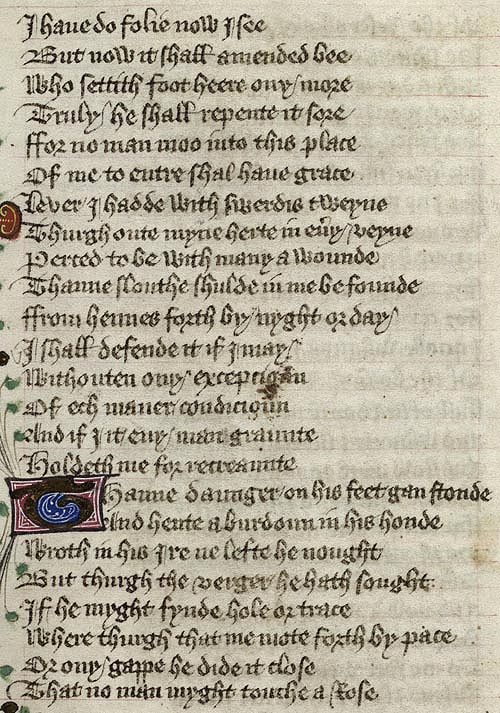 I haue do folie now I see
But now it shall amended bee
Who settith foot heere ony more
Truly he shall repente it sore
ffor no man moo into this place
Of me to entre shal haue grace
Lever I hadde with swerdis tweyne
Thurgh oute myne herte in eu̓y veyne
Perced to be with many a wounde
Thanne slouthe shulde in me be founde
ffrom hennes forth by nyght or day
I shall defende it if I may
Withouten ony excepcioun
Of ech maner condicioun
And if I it eny man graunte
Holdeth me for recreaunte
Thanne daunger on his feet gan stonde
And hente a burdoun in his honde
Wroth in his Ire ne lefte he nought
But thurgh the verger he hath sought
If he myght fynde hole or trace
Where thurgh that me mote forth by pace
Or ony gappe he dide it close
That no man myght touche a Rose